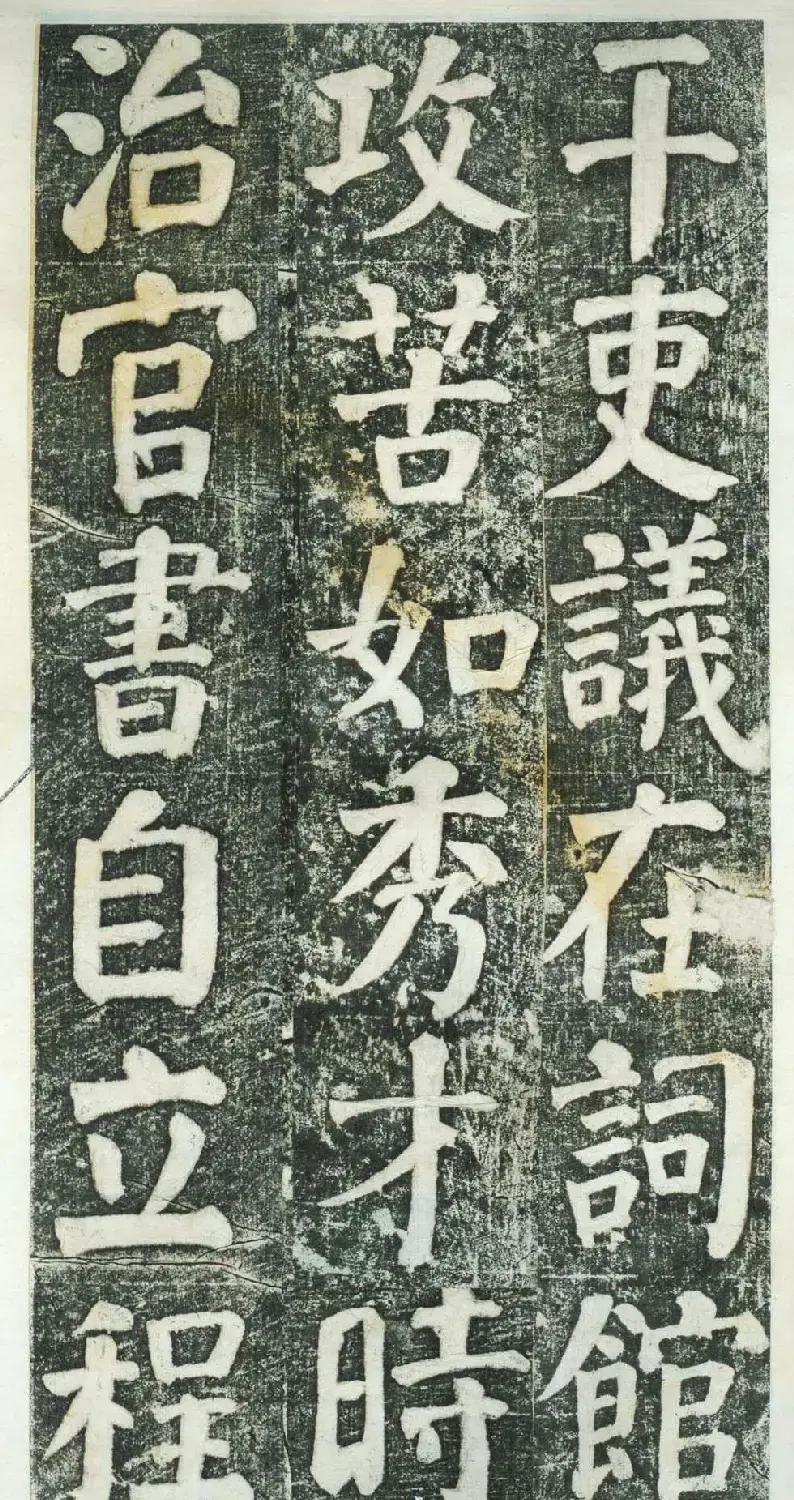 干吏議在詞館
攻苦如秀才時
治官書自立程